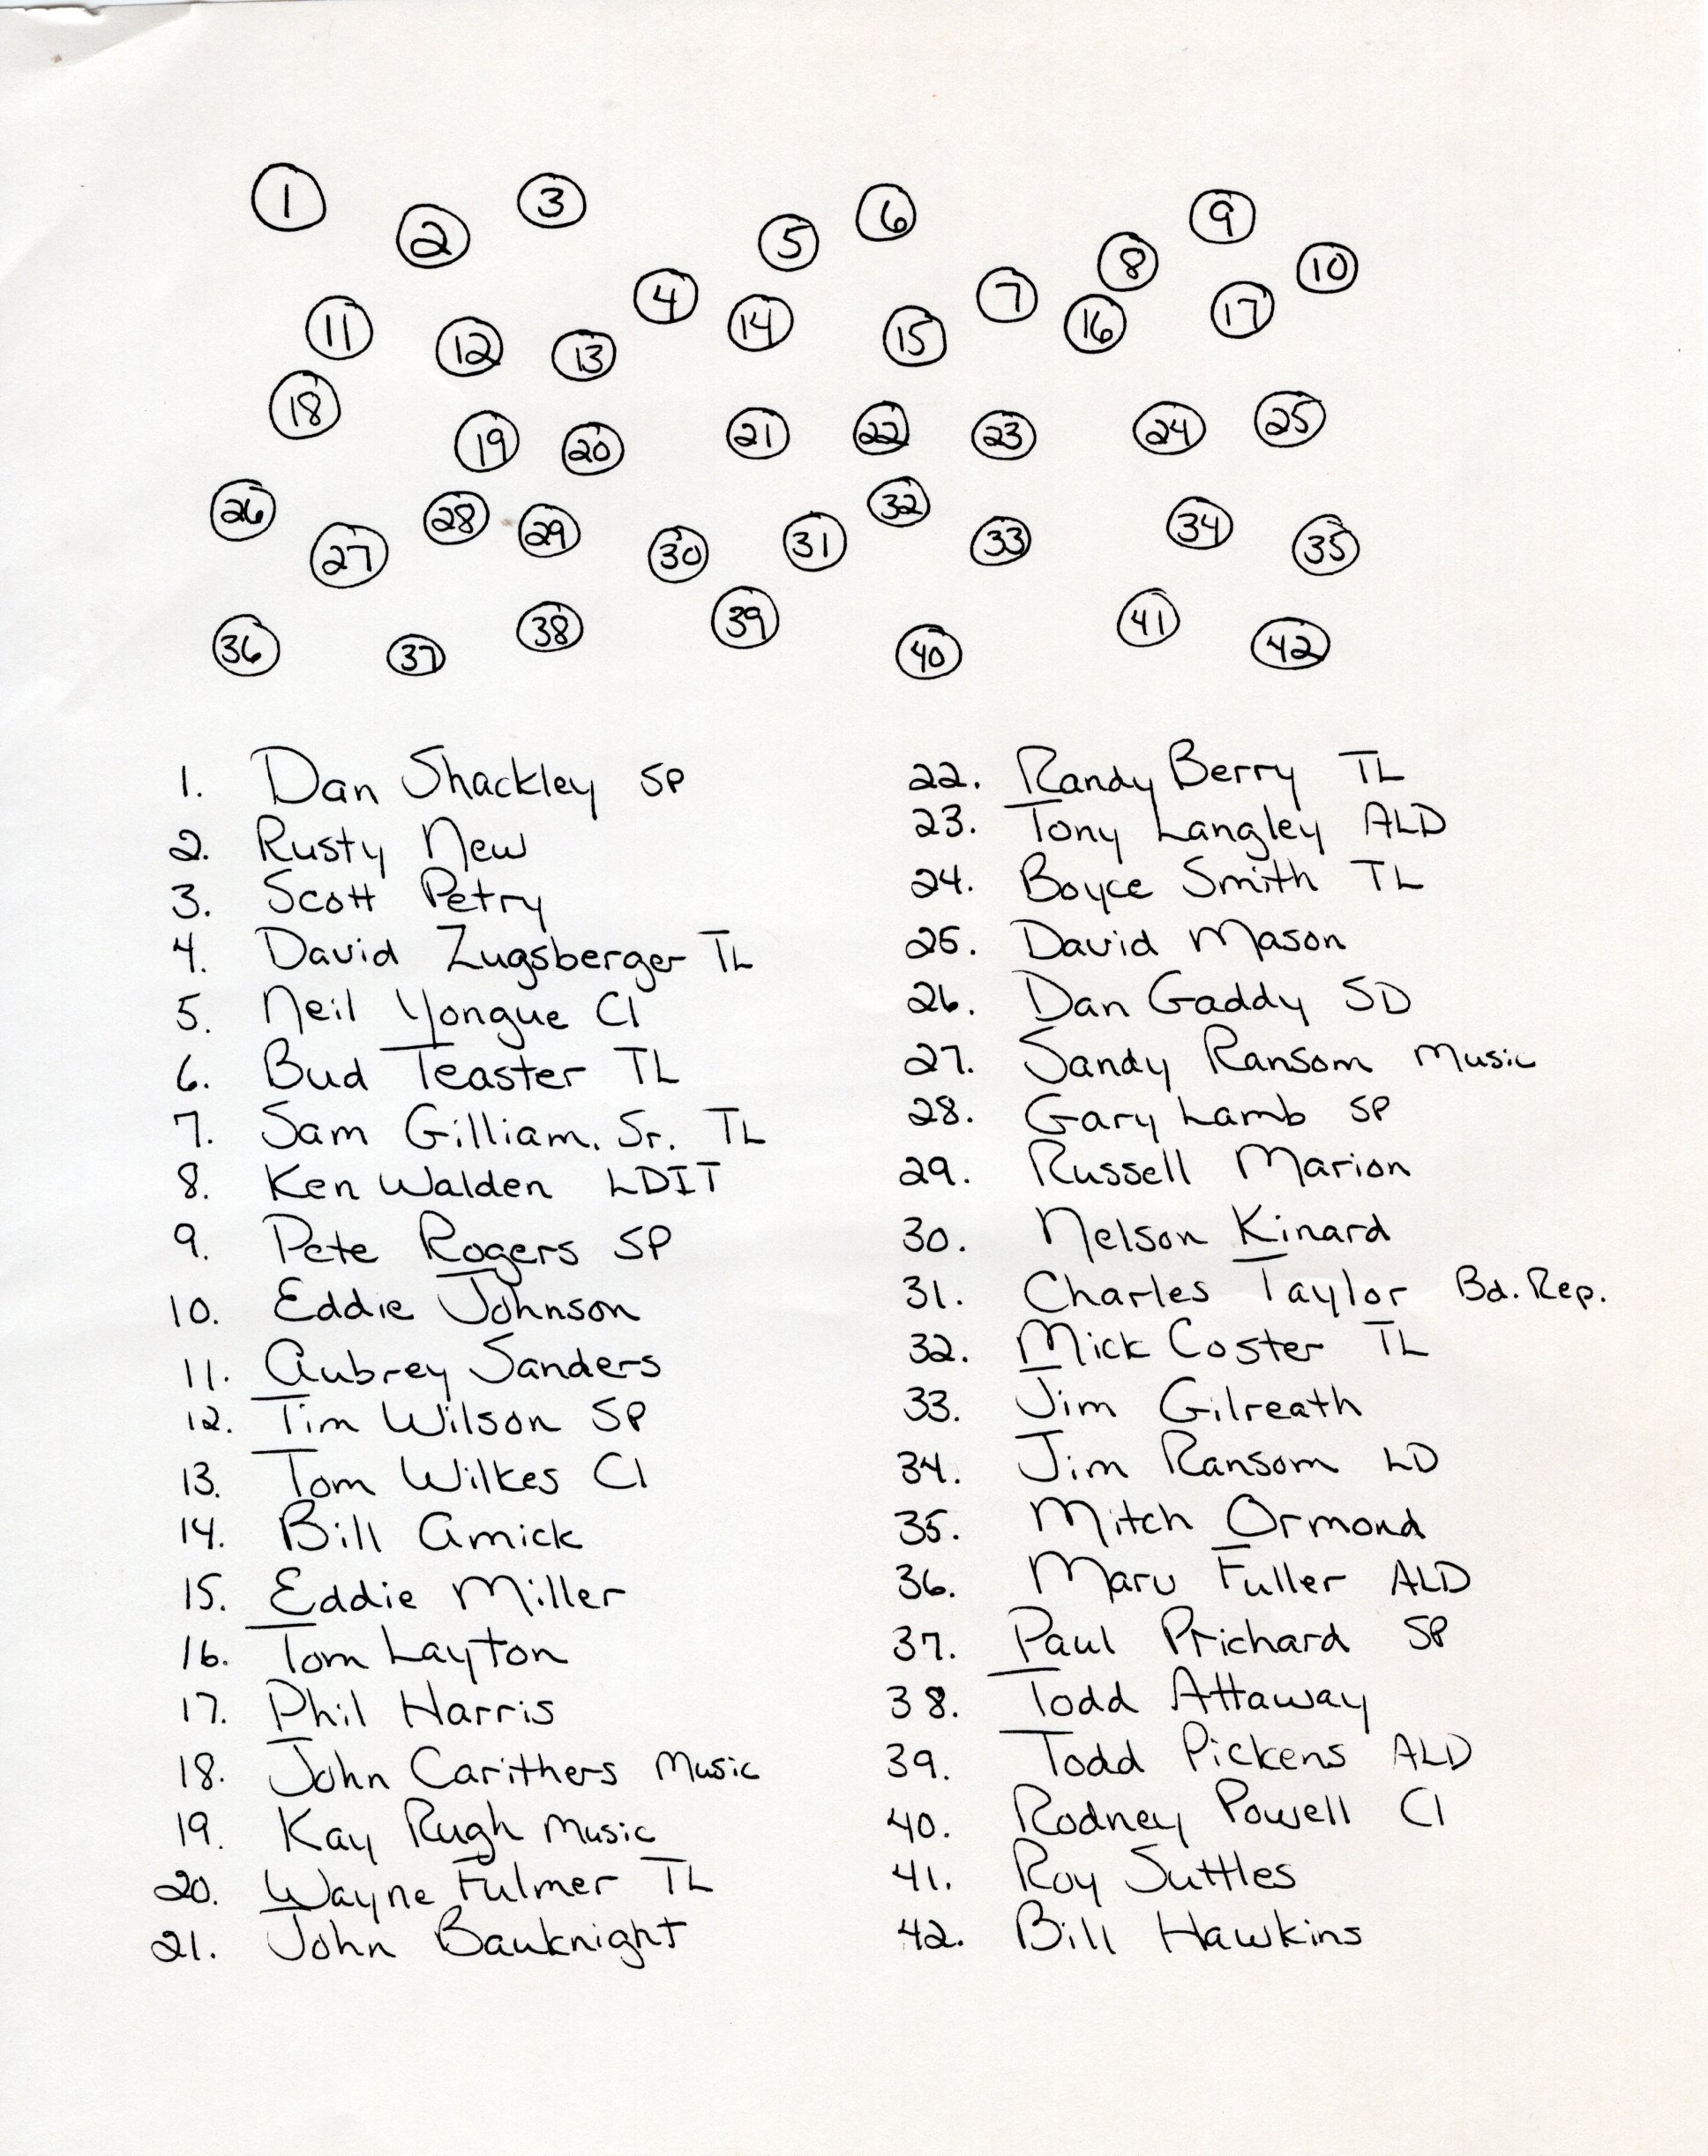 1
2
3
4
5
6
7
8
9
10
11
12
13
14
15
16
17
18
19
20
21
22
23
24
25
26
27
28
29
30
31
32
33
34
35
36
37
38
39
40
41
42
1. Dan Shackley SP
2. Rusty New
3. Scott Petry
4. David Zugsberger TL
5. Neil Yongue Cl
6. Bud Teaster TL
7. Sam Gilliam, Sr. TL
8. Ken Walden LDIT
9. Pete Rogers SP
10. Eddie Johnson
11. Aubrey Sanders
12. Tim Wilson SP
13. Tom Wilkes Cl
14. Bill Amick
15. Eddie Miller
16. Tom Layton
17. Phil Harris
18. John Carithers Music
19. Kay Rugh Music
20. Wayne Fulmer TL
21. John Bauknight
22. Randy Berry TL
23. Tony Langley ALD
24. Boyce Smith TL
25. David Mason
26. Dan Gaddy SD
27. Sandy Ransom Music
28. Gary Lamb SP
29. Russell Marion
30. Nelson Kinard
31. Charles Taylor Bd. Rep.
32. Mick Coster TL
33. Jim Gilreath
34. Jim Ransom LD
35. Mitch Ormond
36. Marv Fuller ALD
37. Paul Prichard SP
38. Todd Attaway
39. Todd Pickens ALD
40. Rodney Powell Cl
41. Roy Suttles
42. Bill Hawkins